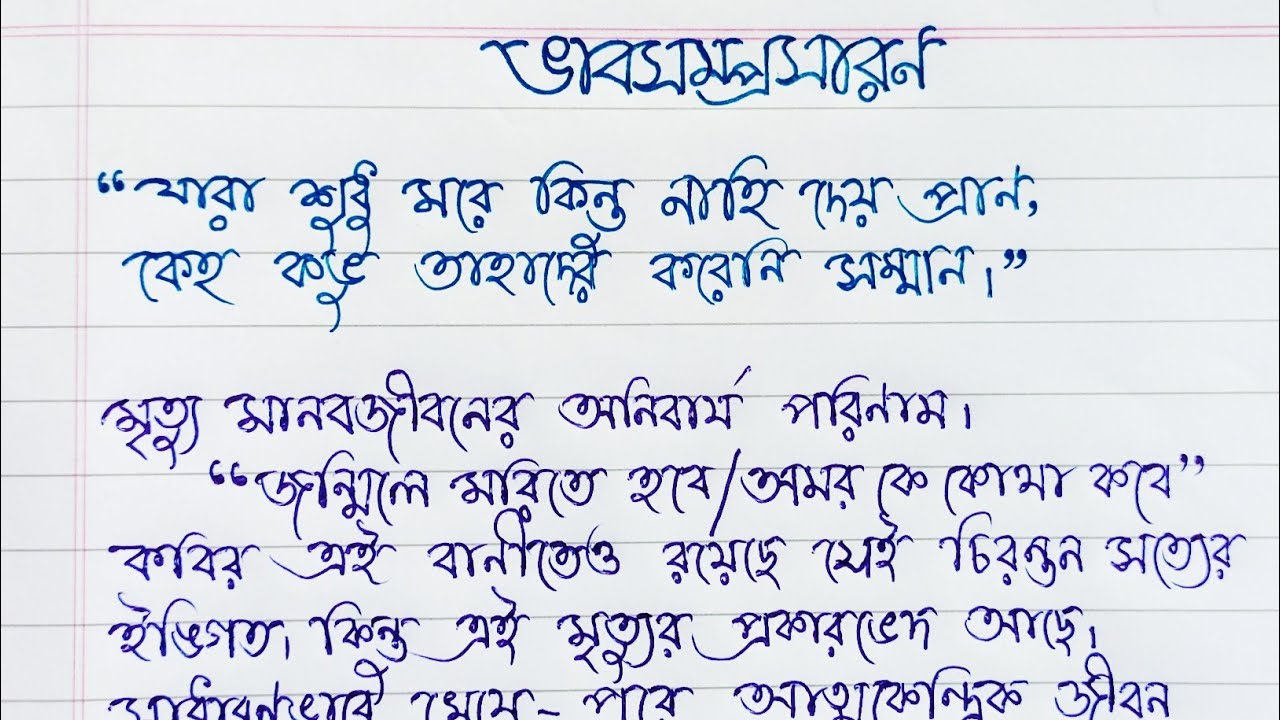 ভাবসম্প্রসারন
“যারা শুধু মরে কিন্তু নাহি দেয় প্রান,
কেহ কভু তাহাদেরঁ করেনি সম্মান।”
মৃত্যু মানবজীবনের অনিবার্য পরিনাম।
“জন্মিলে মরিতে হবে/অমর কে কোথা কবে”
কবির এই বানীতেও রয়েছে সেই চিরন্তন সত্যের
ইঙ্গিত। কিন্তু এই মৃত্যুর প্রকারভেদ আছে।
সাধারনভাবে খেয়ে-পরে আত্মকেন্দ্রিক জীবন